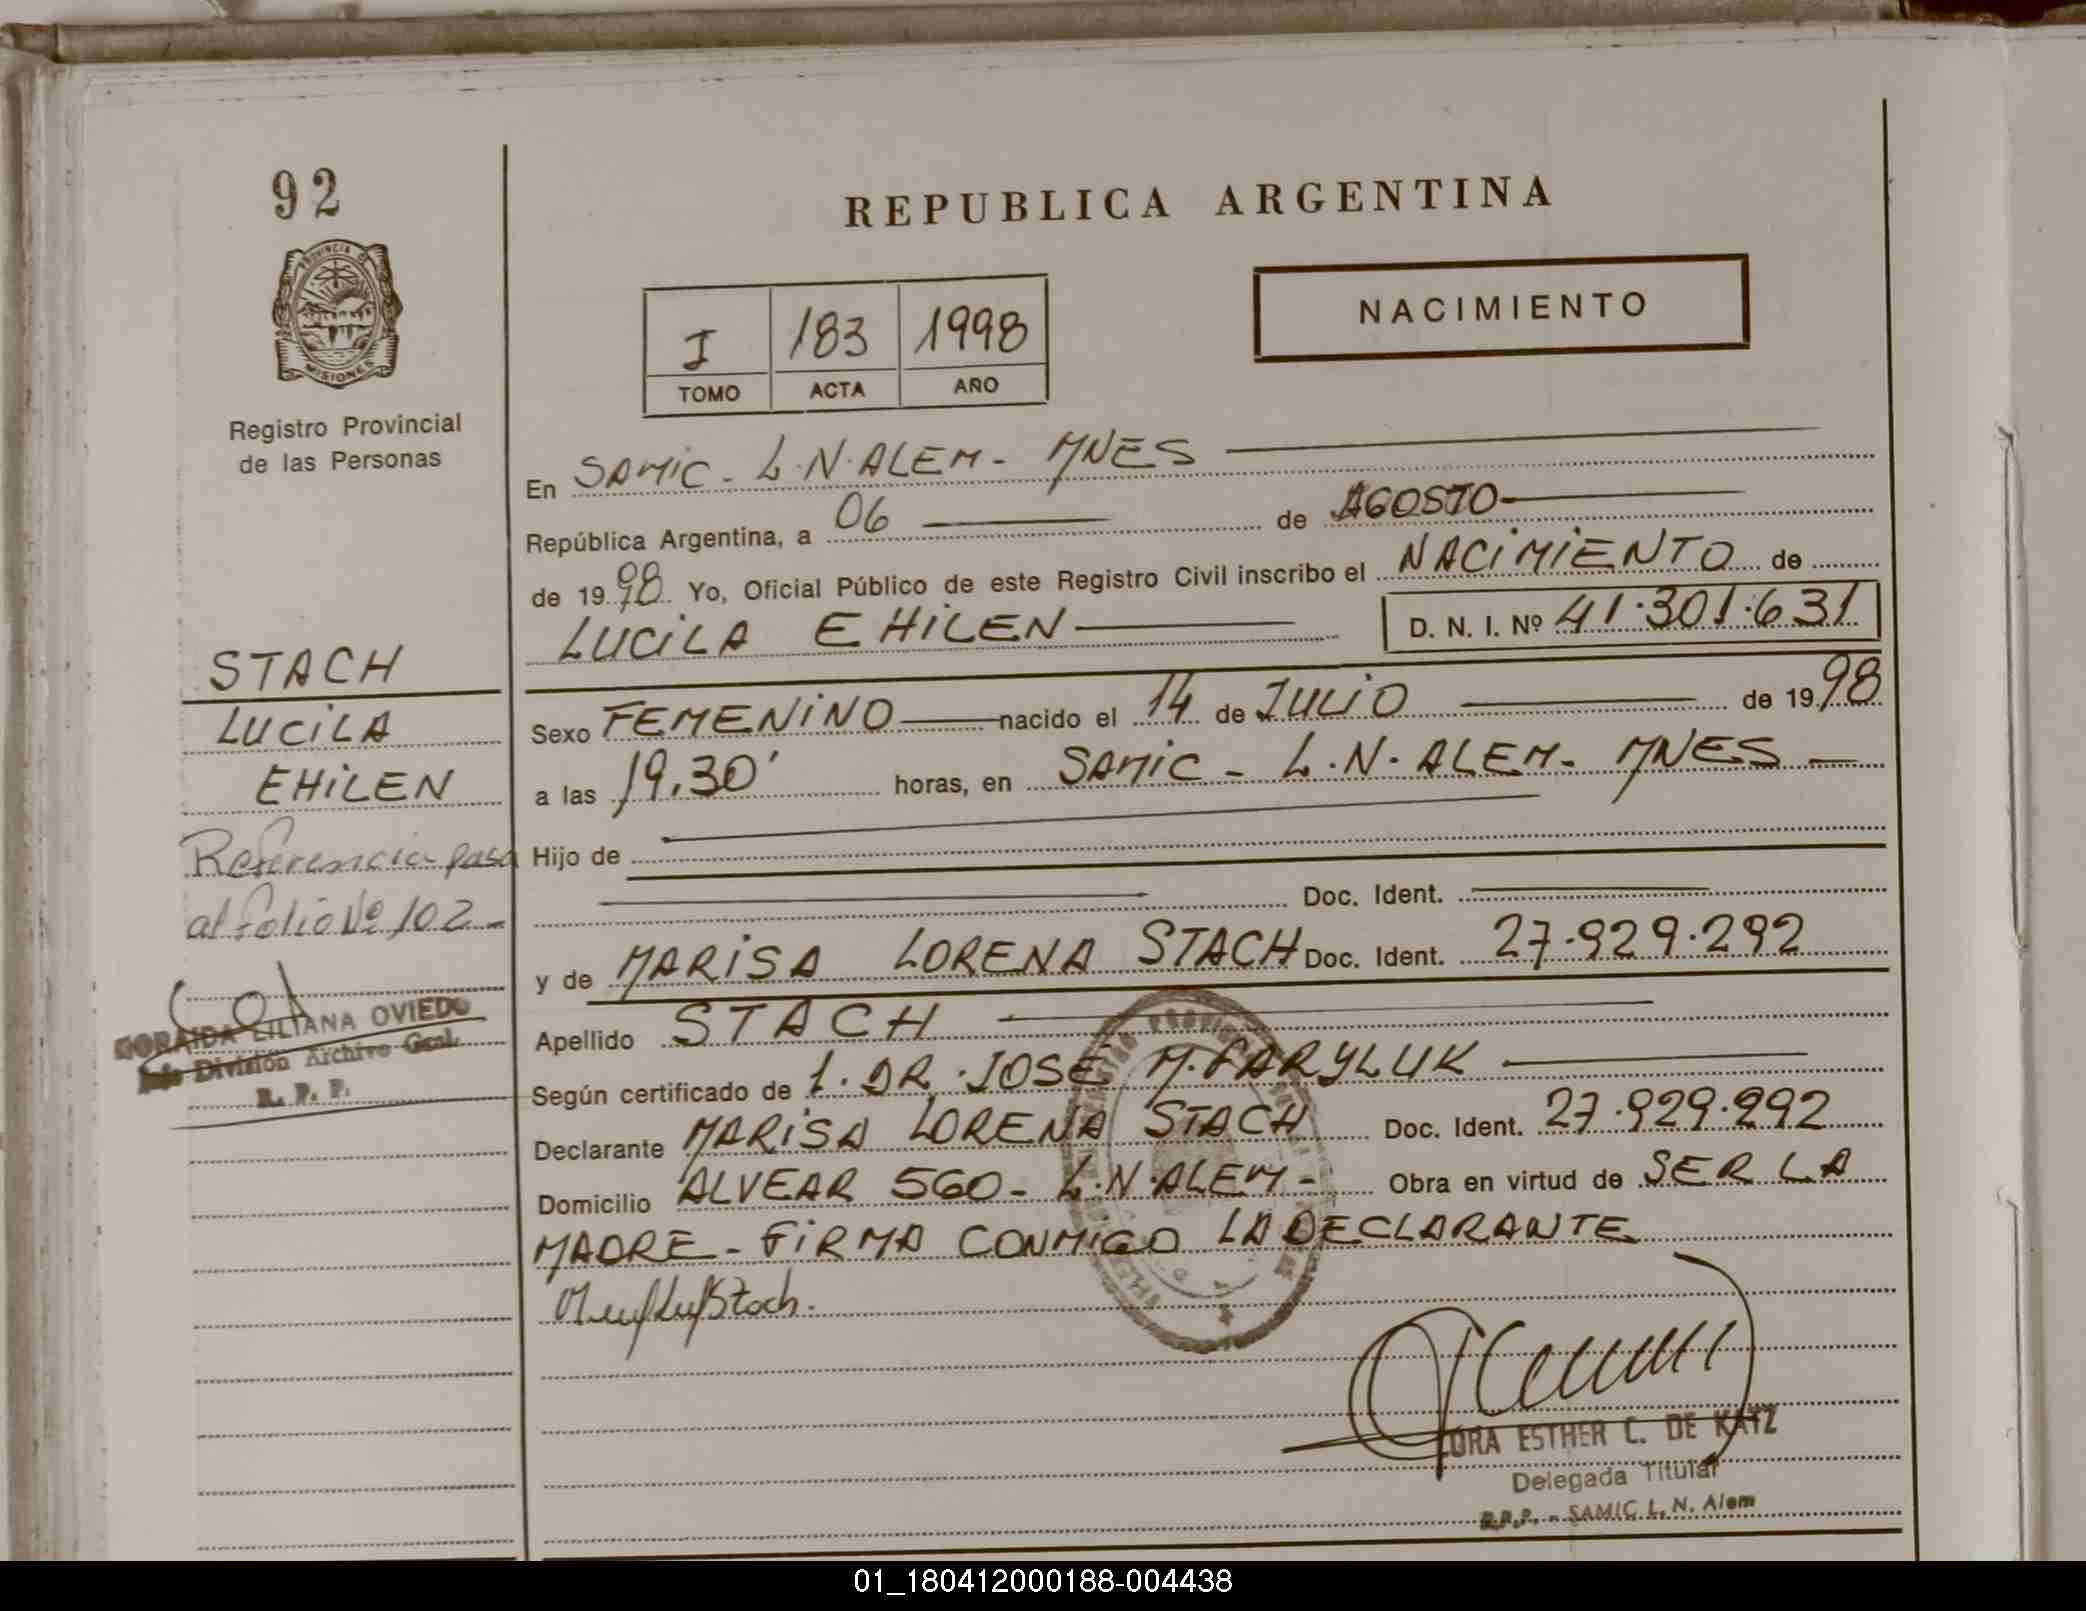 92
REPUBLICA ARGENTINA
PROVINCIA DE
MISIONES
Registro Provincial
de las Personas
NACIMIENTO
I 183 1998
TOMO ACTA AÑO
En SAMIC - L.N.ALEM - MNES
República Argentina, a 06 de AGOSTO
de 1998 Yo, Oficial Público de este Registro Civil inscribo el NACIMIENTO de
LUCILA EHILEN D. N. I. Nº 41.301.631
STACH
LUCILA
EHILEN
Referencia pasa
al folio Nº 102-
ZORAIDA LILIANA OVIEDO
Jefe División Archivo Gral.
R. P. P.
Sexo FEMENINO nacido el 14 de JULIO de 1998
a las 19,30' horas, en SAMIC - L.N.ALEM - MNES
Hijo de
Doc. Ident.
y de MARISA LORENA STACH Doc. Ident. 27.929.292
Apellido STACH
Según certificado de 1. DR. JOSE M. FARYLUK
Declarante MARISA LORENA STACH Doc. Ident. 27.929.292
Domicilio ALVEAR 560 - L.N.ALEM - Obra en virtud de SER LA
MADRE - FIRMA CONMIGO LA DECLARANTE
Stach.
ESTHER C. DE KATZ
Delegada Titular
R.P.P. - SAMIC L. N. Alem
01_180412000188-004438